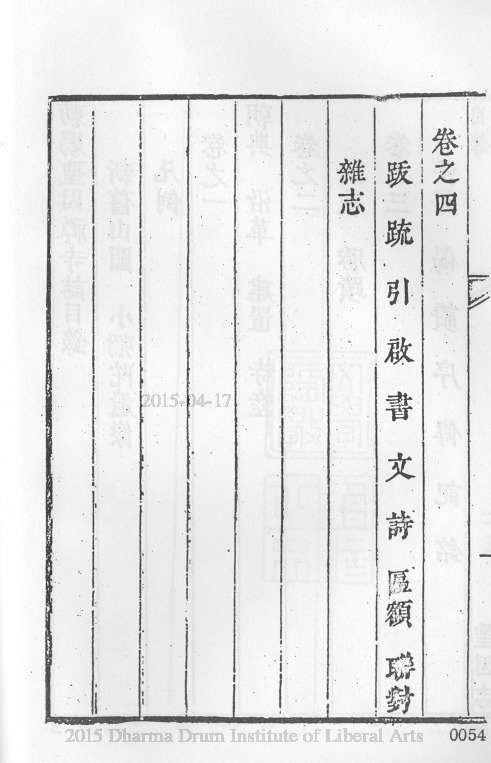 卷之四
跋 疏 引 啟 書 文 詩 匾額 聯對
雜志
2015-04-17
2015 Dharma Drum Institute of Liberal Arts
0054